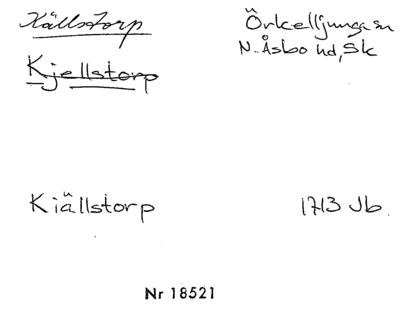 Källstorp
Örkelljunga sn
N. Åsbo hd, Sk
Kjellstorp
Kiällstorp 1713 Jb.
Nr 18521